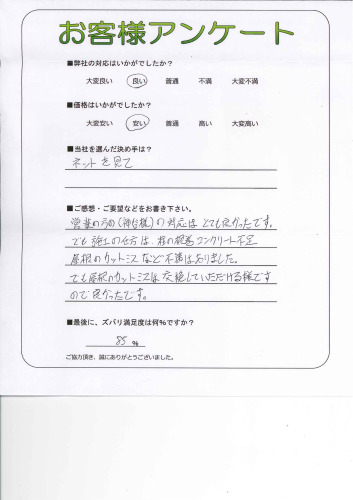 お客様アンケート
■弊社の対応はいかがでしたか?
大変良い 良い 普通 不満 大変不満
■価格はいかがでしたか?
大変安い 安い 普通 高い 大変高い
■当社を選んだ決め手は?
ネットを見て
■ご感想・ご要望などをお書き下さい。
営業の方の(神谷様)の対応はとても良かったです。
でも施工の仕方は、柱の根巻コンクリート不足
屋根のカットミスなど不満はありました。
でも屋根のカットミスは交換していただける様です
ので良かったです。
■最後に、ズバリ満足度は何%ですか?
85 %
ご協力頂き、誠にありがとうございました。